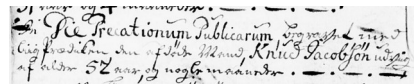 Die Precationum Publicarum, begravet med
Liig Prædiken den afdøde Mand, Knud Jacobsøn
af alder 52 aar og nogle maaneder